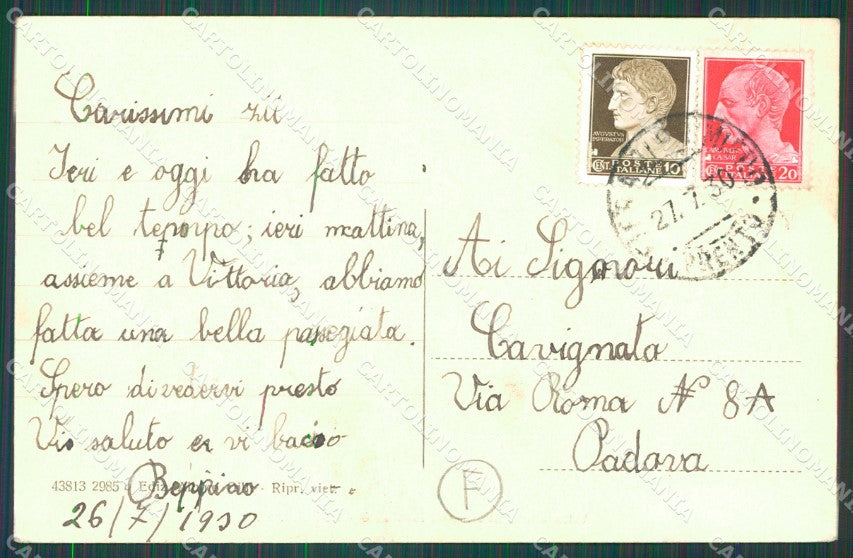 Carissimi zii
Ieri e oggi ha fatto
bel tempo; ieri mattina,
assieme a Vittoria, abbiamo
fatta una bella passegiata.
Spero di vedervi presto
Vi saluto e vi bacio
Beppino
26/7/1930
43813 2985 Ediz. Ripr. viet.
F
AVGVSTVS
IMPERATOR
CENT. POSTE 10
ITALIANE
CAESAR
20
27.7.30
TRENTO
Ai Signori
Cavignato
Via Roma N 8A
Padova
CARTOLINOMANIA